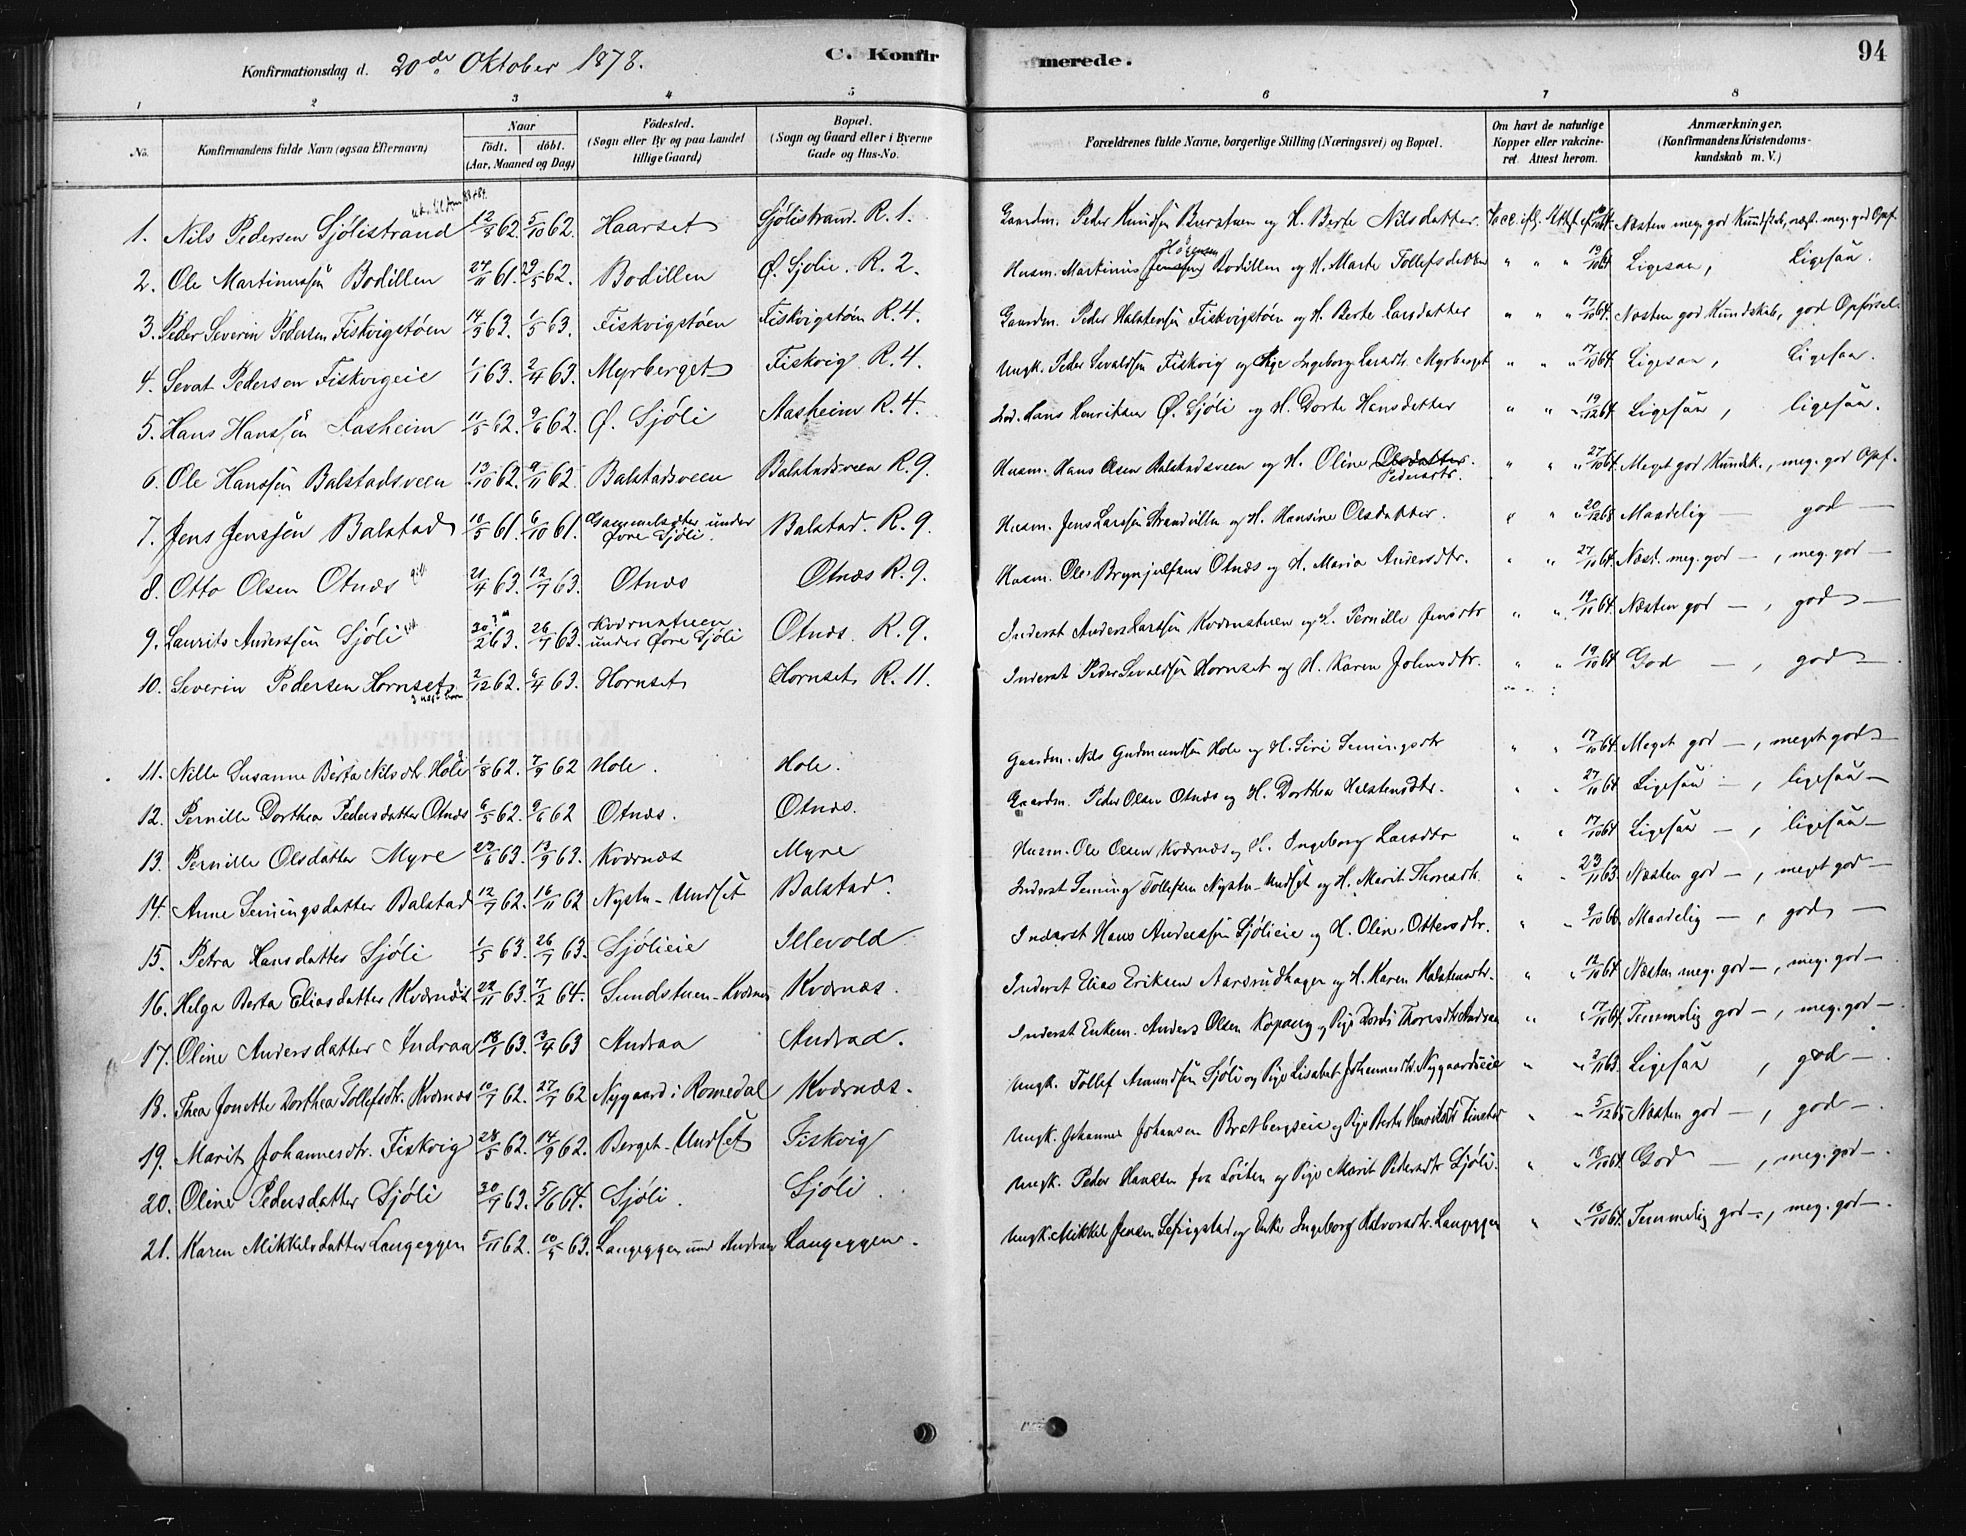 Konfirmationsdag d. 20de Oktober 1878. C. Konfirmerede. 94
1 2 3 4 5 6 7 8
No. Konfirmandens fulde Navn (ogsaa Efternavn) Naar födt. döbt. (Aar, Maaned og Dag) Födested. (Sogn eller By og paa Landet tillige Gaard) Bopæl. (Sogn og Gaard eller i Byerne Gade og Hus-No. Forældrenes fulde Navne, borgerlige Stilling (Næringsvei) og Bopæl. Om havt de naturlige Kopper eller vakcineret. Attest herom. Anmærkninger. (Konfirmandens Kristendomskundskab m. V.)
1. Nils Pedersen Sjölistrand 12/8 62. 5/10 62. Haarset Sjölistrand. R. 1. Gaardm. Peder Knudsen Burstuen og H. Berte Nilsdatter. Næsten meg. god Kundskab, næst. meg. god Opf.
2. Ole Martinussen Bodillen 27/11 61. 29/5 62. Bodillen Ø. Sjölie. R. 2. Husm. Martinus Bodillen og H. Marte Tollefsdatter " " " 19/10 64 Ligesaa, Ligesaa.
3. Peder Severin Pedersen Fiskvigstöen 14/3 63. 1/5 63. Fiskvigstöen Fiskvigstöen R. 4. Gaardm. Peder Halstensen Fiskvigstöen og H. Berte Larsdatter " " " 17/10 64. Næsten god Kundskab, god Opförsel
4. Sevat Pedersen Fiskvigeie 1/1 63. 2/4 63. Myrberget Fiskvig R. 4. Ungk. Peder Sevaldsen Fiskvig og Pige Ingeborg Larsdtr Myrberget " " " 17/10 64. Ligesaa, Ligesaa.
5. Hans Hanssen Aasheim 11/5 62. 9/6 62. Ø. Sjöli Aasheim R. 4. Ind. Hans Henriksen Ø. Sjöli og H. Dorte Hansdatter " " " 19/12 64. Ligesaa, ligesaa.
6. Ole Hanssen Balstadsveen 13/10 62. 9/11 62. Balstadsveen Balstadsveen R. 9. Husm. Hans Olsen Balstadsveen og H. Oline Olsdatter. Pedersdtr. " " " 27/10 64. Meget god Kundsk., meg. god Opf.
7. Jens Jenssen Balstad 10/5 61. 6/10 61. under Øvre Sjöli. Balstad. R. 9. Husm. Jens Larssen Strandvillen og H. Hansine Olsdatter. " " " 20/12 68 Maadelig — god —
8. Otto Olsen Otnæs 21/4 63. 12/7 63. Otnæs Otnæs R. 9. Husm. Ole Brynjulfsen Otnæs og H. Maria Andersdtr. " " " 27/10 64. Næst. meg. god —, meg. god —
9. Laurits Anderssen Sjöli 30?/2 63. 26/7 63. Kværnstuen under Øvre Sjöli Otnæs. R. 9. Inderst Anders Larssen Kværnstuen og H. Pernille Jensdtr " " 19/11 64. Næsten god —, god —
10. Severin Pedersen Hornset 2/12 62. 6/4 63. Hornset Hornset R. 11. Inderst Peder Sevaldsen Hornset og H. Karen Johnsdtr. " " 19/10 64. God —, god —
11. Nille Susanne Berta Nilsdtr Hole 1/8 62. 7/9 62 Hole. Hole. Gaardm. Nils Gudmundsen Hole og H. Siri Semingsdtr " " 17/10 64. Meget god —, meget god —
12. Pernille Dorthea Pedersdatter Otnæs 6/5 62. 9/6 62 Otnæs. Otnæs. Gaardm. Peder Olsen Otnæs og H. Dorthea Halstensdtr. " " 27/11 64 Ligesaa —, ligesaa —
13. Pernille Olsdatter Myre 29/6 63. 13/9 63. Kværnæs Myre Husm. Ole Olsen Kværnæs og H. Ingeborg Larsdtr " " 17/10 64 Ligesaa —, ligesaa —
14. Anne Semingsdatter Balstad 12/7 62. 16/11 62 Nystu-Undset Balstad. Inderst Seming Tollefsen Nystu-Undset og H. Marit Thoresdtr. " " 23/11 63. Næsten god —, meget god —
15. Petra Hansdatter Sjöli 1/5 63. 26/7 63. Sjölieie Illevold Inderst Hans Anderssen Sjölieie og H. Oline Ottersdtr. " " 9/10 66. Maadelig —, god —
16. Helga Berta Eliasdatter Kværnæs 22/11 63. 7/2 64. Sundstuen-Kværnæs Kværnæs. Inderst Elias Eriksen Aasrudhagen og H. Karen Halstensdtr. " " 12/10 64. Næsten meg. god —, meg. god —
17. Oline Andersdatter Andraa 18/1 63. 3/4 63 Andraa Andraa. Inderst Enkem. Anders Olsen Kopang og Pige Dordi Thoresdtr Andraa " " 17/10 64. Temmelig god —, meg. god —
18. Thea Jonette Dorthea Tollefsdtr. Kværnæs 10/7 62. 27/7 62 Nygaard i Romedal Kværnæs. Ungk. Tollef Amundsen Sjöli og Pige Lisabet Johannesdtr. Nygaardseie " " 3/11 63. Ligesaa, god —.
19. Marit Johannesdtr. Fiskvig 28/5 62. 14/9 62. Berget-Undset Fiskvig Ungk. Johannes Johansen Bratbergseie og Pige Berte Henriksdtr Finstad " " 5/12 65 Næsten god —, god —.
20. Oline Pedersdatter Sjöli 30/9 63. 5/6 64. Sjöli. Sjöli. Ungk. Peder Hansen fra Löiten og Pige Marit Pedersdtr Sjöli. " " 18/10 64. God —, meg. god —.
21. Karen Mikkelsdatter Langeggen 5/11 62. 10/5 63. Langeggen und Andraa Langeggen. Ungk. Mikkel Jensen og Enke Ingeborg Halvorsdtr. Langeggen " " 18/10 64. Temmelig god —, meg. god —.